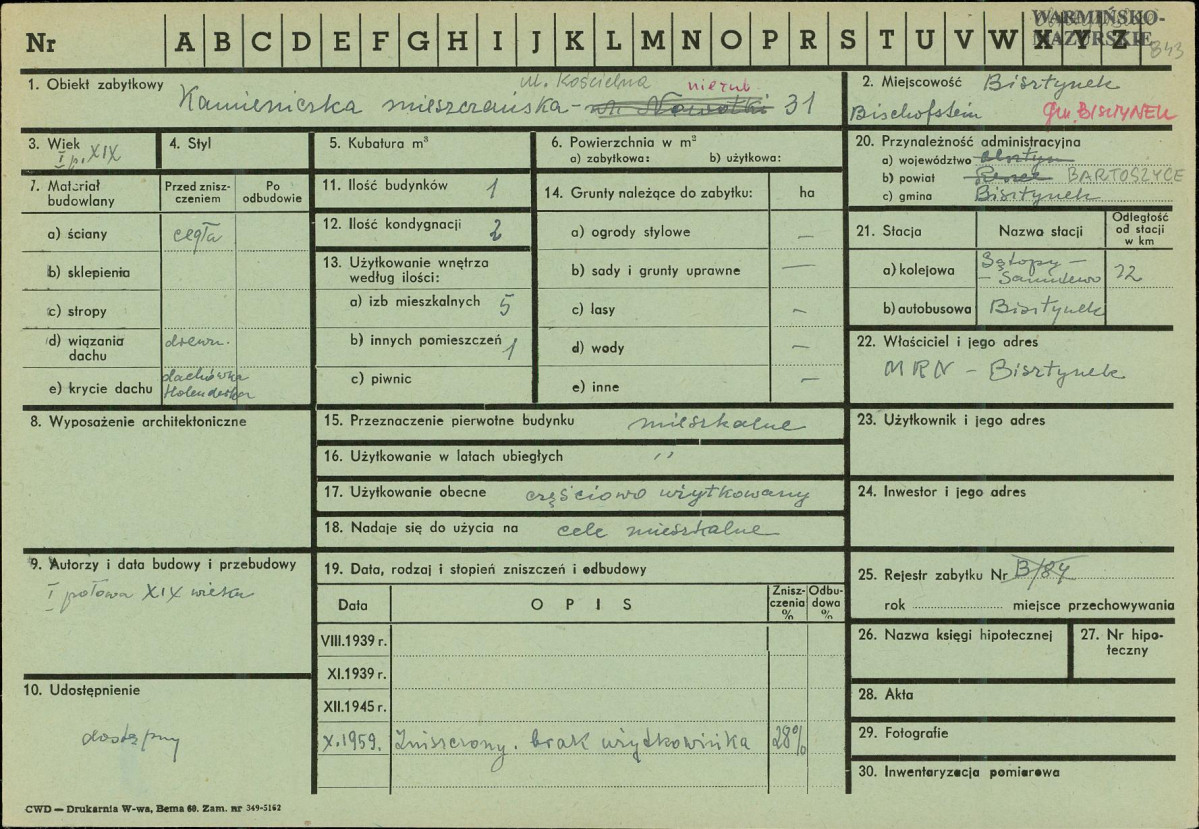 Nr A B C D E F G H I J K L M N O P R S T U V W X Y Z
WARMIŃSKO-
MAZURSKIE
843
1. Obiekt zabytkowy
ul. Kościelna
nieżub.
Kamieniczka mieszczańska - ul. Nowotki 31
2. Miejscowość Bisztynek
Bischofstein gm. BISZTYNEK
3. Wiek
I p. XIX
4. Styl
5. Kubatura m³
6. Powierzchnia w m²
a) zabytkowa: b) użytkowa:
20. Przynależność administracyjna
a) województwo Olsztyn
b) powiat Reszel BARTOSZYCE
c) gmina Bisztynek
7. Materiał budowlany
Przed zniszczeniem
Po odbudowie
a) ściany cegła
b) sklepienia
c) stropy
d) wiązania dachu drewn.
e) krycie dachu dachówka
Holenderka
11. Ilość budynków 1
12. Ilość kondygnacji 2
13. Użytkowanie wnętrza
według ilości:
a) izb mieszkalnych 5
b) innych pomieszczeń 1
c) piwnic
14. Grunty należące do zabytku: ha
a) ogrody stylowe —
b) sady i grunty uprawne —
c) lasy —
d) wody —
e) inne —
21. Stacja Nazwa stacji Odległość od stacji w km
a) kolejowa Sątopy -
- Samulewo 12
b) autobusowa Bisztynek
22. Właściciel i jego adres
MRN - Bisztynek
8. Wyposażenie architektoniczne
15. Przeznaczenie pierwotne budynku mieszkalne
16. Użytkowanie w latach ubiegłych "
17. Użytkowanie obecne częściowo użytkowany
18. Nadaje się do użycia na cele mieszkalne
23. Użytkownik i jego adres
24. Inwestor i jego adres
9. Autorzy i data budowy i przebudowy
I połowa XIX wieku
19. Data, rodzaj i stopień zniszczeń i odbudowy
Data OPIS Zniszczenia % Odbudowa %
VIII.1939 r.
XI.1939 r.
XII.1945 r.
X.1959. Zniszczony. brak użytkownika 28%
25. Rejestr zabytku Nr B/84
rok miejsce przechowywania
26. Nazwa księgi hipotecznej
27. Nr hipoteczny
28. Akta
29. Fotografie
30. Inwentaryzacja pomiarowa
10. Udostępnienie
dostępny
CWD — Drukarnia W-wa, Bema 60. Zam. nr 349-5162